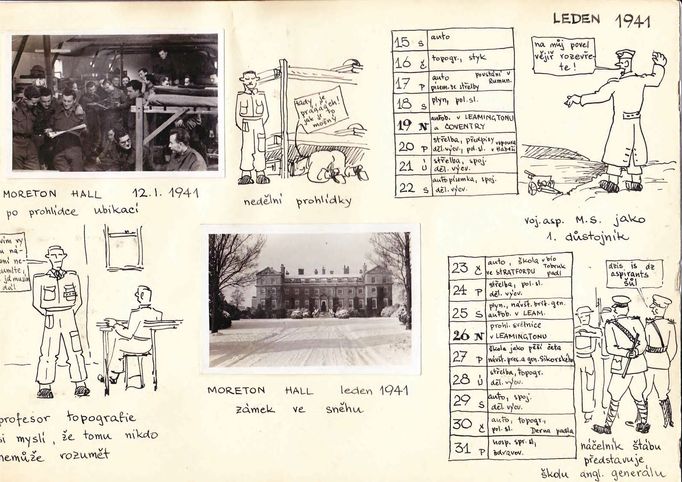 LEDEN 1941
15 s auto
16 č topogr., styk.
17 P auto povstání v Rumun.
písem. ze střelby
18 s plyn, pol. sl.
19 N autob. v LEAMINGTONU
a COVENTRY
20 P střelba, předpisy
děl. výcv., pol. sl.
21 Ú střelba, spoj.
děl. výcv.
22 s auto písemka, spoj.
děl. výcv.
na můj povel
vějíř rozevře-
te!
tady je
to
MORETON HALL 12.1.1941
po prohlídce ubikací
nedělní prohlídky
voj. asp. M.S. jako
1. důstojník
23 č auto, škola v bio Tobruk
ve STRATFORDU padl
24 P střelba, pol. sl.
děl. výcv.
25 S plyn, návšt. brit. gen.
autob. v LEAM.
26 N prohl. světnice
v LEAMINGTONU
27 P škola jako pěší četa
návšt. pres. a gen. Sikorského
28 Ú střelba, topogr.
děl. výcv.
29 s auto, spoj.
děl. výcv.
30 č auto, topogr,
pol. sl. Derna padla
31 P hosp. spr. sl,
zdravov.
dzis is dz
aspirants
náčelník štábu
představuje
školu angl. generálu
MORETON HALL leden 1941
zámek ve sněhu
profesor topografie
si myslí, že tomu nikdo
nemůže rozumět